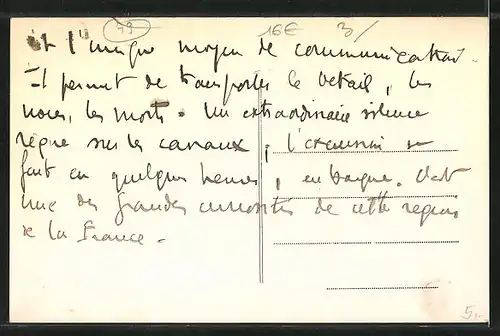 79 16€ 3/
est l'unique moyen de communication.
Il permet de transporter le bétail, les
noces, les morts. Un extraordinaire silence
règne sur les canaux ; l'excursion se
fait en quelques heures, en barque. C'est
une des grandes curiosités de cette région
de la France.
5.-